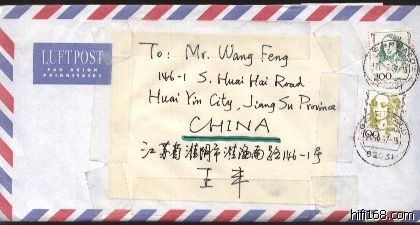 LUFTPOST
PAR AVION
PRIORITAIRE
To: Mr. Wang Feng
146-1 S. Huai Hai Road
Huai Yin City, Jiang Su Province
CHINA
江苏省淮阴市淮海南路146-1号
王丰
200
100
hifi168.com